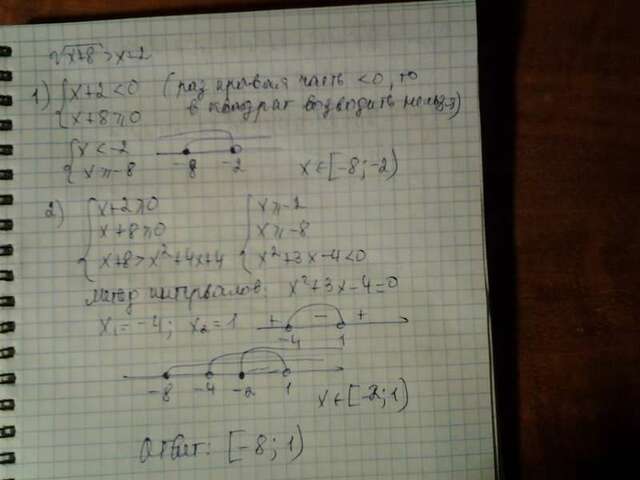 √x+8 > x-2
1) { x+2<0 (раз правая часть <0, то
{ x+8≥0 в квадрат возводить нельзя)
{ x<-2
{ x≥-8
-8 -2
x∈[-8;-2)
2) { x+2≥0 { x≥-2
x+8≥0 x≥-8
x+8>x²+4x+4 x²+3x-4<0
Метод интервалов: x²+3x-4=0
x₁=-4; x₂=1 + - +
-4 1
-8 -4 -2 1
x∈[-2;1)
Ответ: [-8;1)